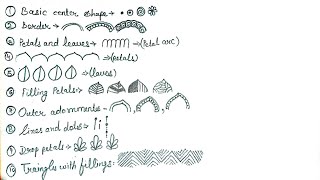 ① Basic center shape →
② Border →
③ Petals and leaves → (Petal arc)
④ → (petals)
⑤ → (laves)
⑥ Filling Petals →
⑦ Outer adornments -
⑧ Lines and dots →
⑨ Drop petals →
⑩ Traingle with fillings: